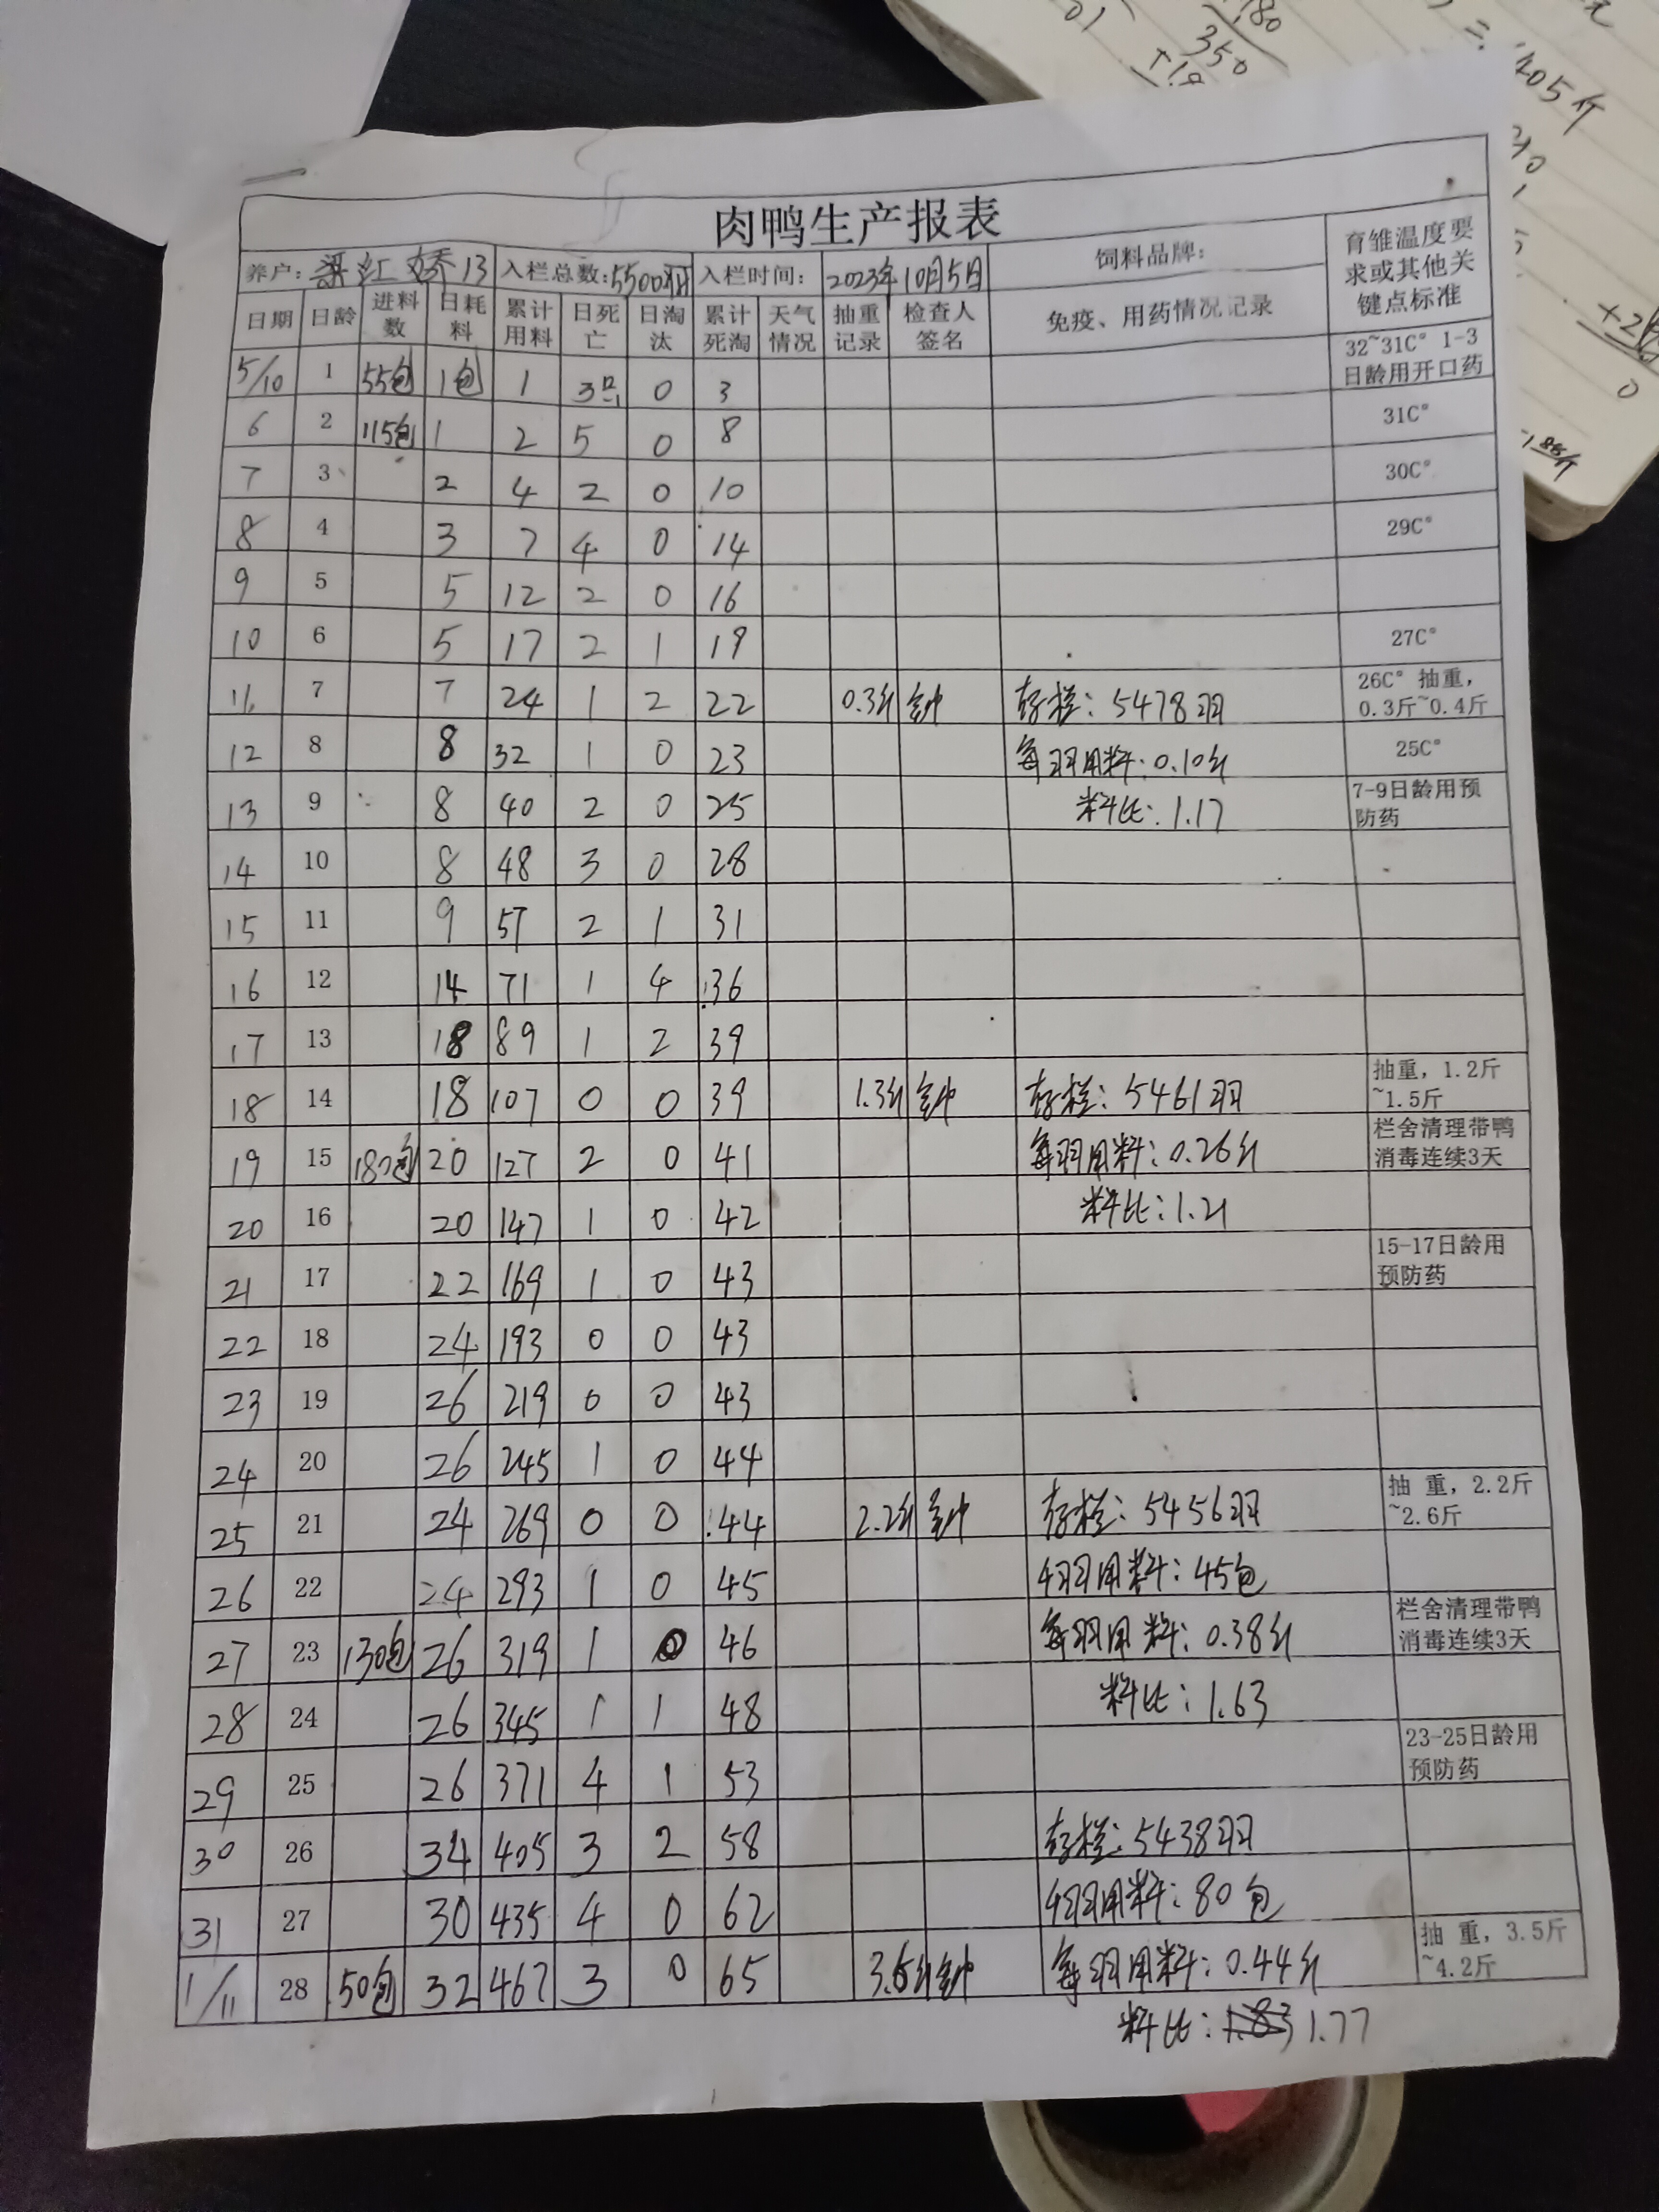 肉鸭生产报表
养户：梁红娇13 入栏总数：5500羽 入栏时间：2023年10月5日 饲料品牌： 育雏温度要求或其他关键点标准
日期 日龄 进料数 日耗料 累计用料 日死亡 日淘汰 累计死淘 天气情况 抽重记录 检查人签名 免疫、用药情况记录
5/10 1 55包 1包 1 3只 0 3 32~31C° 1-3日龄用开口药
6 2 115包 1 2 5 0 8 31C°
7 3 2 4 2 0 10 30C°
8 4 3 7 4 0 14 29C°
9 5 5 12 2 0 16
10 6 5 17 2 1 19 27C°
11 7 7 24 1 2 22 0.3斤 存栏：5478羽 26C° 抽重，0.3斤~0.4斤
12 8 8 32 1 0 23 每羽用料：0.10斤 25C°
13 9 8 40 2 0 25 料比：1.17 7-9日龄用预防药
14 10 8 48 3 0 28
15 11 9 57 2 1 31
16 12 14 71 1 4 36
17 13 18 89 1 2 39
18 14 18 107 0 0 39 1.3斤 存栏：5461羽 抽重，1.2斤~1.5斤
19 15 180包 20 127 2 0 41 每羽用料：0.26斤 栏舍清理带鸭消毒连续3天
20 16 20 147 1 0 42 料比：1.21
21 17 22 169 1 0 43 15-17日龄用预防药
22 18 24 193 0 0 43
23 19 26 219 0 0 43
24 20 26 245 1 0 44
25 21 24 269 0 0 44 2.2斤 存栏：5456羽 抽 重，2.2斤~2.6斤
26 22 24 293 1 0 45 用料：45包
27 23 130包 26 319 1 0 46 每羽用料：0.38斤 栏舍清理带鸭消毒连续3天
28 24 26 345 1 1 48 料比：1.63
29 25 26 371 4 1 53 23-25日龄用预防药
30 26 34 405 3 2 58 存栏：5438羽
31 27 30 435 4 0 62 用料：80包
1/11 28 50包 32 467 3 0 65 3.6斤 每羽用料：0.44斤 抽 重，3.5斤~4.2斤
料比：1.83 1.77
180
350
405斤
0